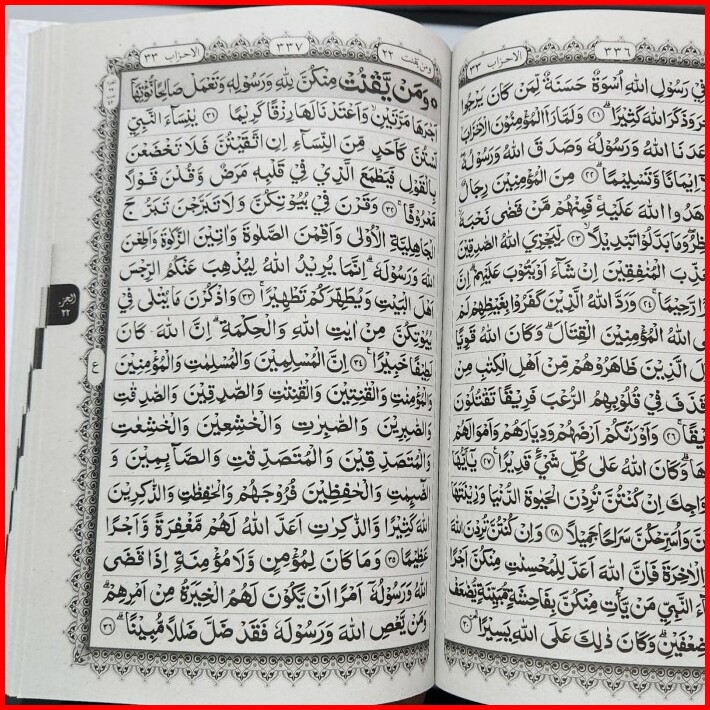 ٣٣٦ الاحزاب ٣٣
فِيْ رَسُوْلِ اللّٰهِ اُسْوَةٌ حَسَنَةٌ لِّمَنْ كَانَ يَرْجُوا
وَذَكَرَ اللّٰهَ كَثِيْرًا ۗ ﴿٢١﴾ وَلَمَّا رَاَ الْمُؤْمِنُوْنَ الْاَحْزَابَ
اللّٰهُ وَرَسُوْلُهٗ وَصَدَقَ اللّٰهُ وَرَسُوْلُهٗ
اِيْمَانًا وَّتَسْلِيْمًا ۗ ﴿٢٢﴾ مِنَ الْمُؤْمِنِيْنَ رِجَالٌ
اللّٰهَ عَلَيْهِ ۚ فَمِنْهُمْ مَّنْ قَضٰى نَحْبَهٗ
وَمَا بَدَّلُوْا تَبْدِيْلًا ۙ ﴿٢٣﴾ لِّيَجْزِيَ اللّٰهُ الصّٰدِقِيْنَ
الْمُنٰفِقِيْنَ اِنْ شَاۤءَ اَوْ يَتُوْبَ عَلَيْهِمْ ۗ اِنَّ
رَّحِيْمًا ۚ ﴿٢٤﴾ وَرَدَّ اللّٰهُ الَّذِيْنَ كَفَرُوْا بِغَيْظِهِمْ لَمْ
اللّٰهُ الْمُؤْمِنِيْنَ الْقِتَالَ ۗ وَكَانَ اللّٰهُ قَوِيًّا
الَّذِيْنَ ظَاهَرُوْهُمْ مِّنْ اَهْلِ الْكِتٰبِ مِنْ
فِيْ قُلُوْبِهِمُ الرُّعْبَ فَرِيْقًا تَقْتُلُوْنَ
﴿٢٦﴾ وَاَوْرَثَكُمْ اَرْضَهُمْ وَدِيَارَهُمْ وَاَمْوَالَهُمْ
وَكَانَ اللّٰهُ عَلٰى كُلِّ شَيْءٍ قَدِيْرًا ﴿٢٧﴾ يٰٓاَيُّهَا
اِنْ كُنْتُنَّ تُرِدْنَ الْحَيٰوةَ الدُّنْيَا وَزِيْنَتَهَا
وَاُسَرِّحْكُنَّ سَرَاحًا جَمِيْلًا ﴿٢٨﴾ وَاِنْ كُنْتُنَّ تُرِدْنَ اللّٰهَ
الْاٰخِرَةَ فَاِنَّ اللّٰهَ اَعَدَّ لِلْمُحْسِنٰتِ مِنْكُنَّ اَجْرًا
النَّبِيِّ مَنْ يَّأْتِ مِنْكُنَّ بِفَاحِشَةٍ مُّبَيِّنَةٍ يُّضٰعَفْ
ضِعْفَيْنِ ۗ وَكَانَ ذٰلِكَ عَلَى اللّٰهِ يَسِيْرًا ۔ ﴿٣٠﴾
ومن يقنت ٢٢ ٣٣٧ الاحزاب ٣٣
وَمَنْ يَّقْنُتْ مِنْكُنَّ لِلّٰهِ وَرَسُوْلِهٖ وَتَعْمَلْ صَالِحًا نُّؤْتِهَآ
اَجْرَهَا مَرَّتَيْنِۙ وَاَعْتَدْنَا لَهَا رِزْقًا كَرِيْمًا ﴿٣١﴾ يٰنِسَاۤءَ النَّبِيِّ
لَسْتُنَّ كَاَحَدٍ مِّنَ النِّسَاۤءِ اِنِ اتَّقَيْتُنَّ فَلَا تَخْضَعْنَ
بِالْقَوْلِ فَيَطْمَعَ الَّذِيْ فِيْ قَلْبِهٖ مَرَضٌ وَّقُلْنَ قَوْلًا
مَّعْرُوْفًاۚ ﴿٣٢﴾ وَقَرْنَ فِيْ بُيُوْتِكُنَّ وَلَا تَبَرَّجْنَ تَبَرُّجَ
الْجَاهِلِيَّةِ الْاُوْلٰى وَاَقِمْنَ الصَّلٰوةَ وَاٰتِيْنَ الزَّكٰوةَ وَاَطِعْنَ
اللّٰهَ وَرَسُوْلَهٗ ۗ اِنَّمَا يُرِيْدُ اللّٰهُ لِيُذْهِبَ عَنْكُمُ الرِّجْسَ
اَهْلَ الْبَيْتِ وَيُطَهِّرَكُمْ تَطْهِيْرًاۚ ﴿٣٣﴾ وَاذْكُرْنَ مَا يُتْلٰى فِيْ
بُيُوْتِكُنَّ مِنْ اٰيٰتِ اللّٰهِ وَالْحِكْمَةِ ۗ اِنَّ اللّٰهَ كَانَ
لَطِيْفًا خَبِيْرًاۚ ﴿٣٤﴾ اِنَّ الْمُسْلِمِيْنَ وَالْمُسْلِمٰتِ وَالْمُؤْمِنِيْنَ
وَالْمُؤْمِنٰتِ وَالْقٰنِتِيْنَ وَالْقٰنِتٰتِ وَالصّٰدِقِيْنَ وَالصّٰدِقٰتِ
وَالصّٰبِرِيْنَ وَالصّٰبِرٰتِ وَالْخٰشِعِيْنَ وَالْخٰشِعٰتِ
وَالْمُتَصَدِّقِيْنَ وَالْمُتَصَدِّقٰتِ وَالصَّاۤىِٕمِيْنَ وَ
الصّٰۤىِٕمٰتِ وَالْحٰفِظِيْنَ فُرُوْجَهُمْ وَالْحٰفِظٰتِ وَالذّٰكِرِيْنَ
اللّٰهَ كَثِيْرًا وَّالذّٰكِرٰتِ اَعَدَّ اللّٰهُ لَهُمْ مَّغْفِرَةً وَّاَجْرًا
عَظِيْمًا ﴿٣٥﴾ وَمَا كَانَ لِمُؤْمِنٍ وَّلَا مُؤْمِنَةٍ اِذَا قَضَى
اللّٰهُ وَرَسُوْلُهٗٓ اَمْرًا اَنْ يَّكُوْنَ لَهُمُ الْخِيَرَةُ مِنْ اَمْرِهِمْ ۗ
وَمَنْ يَّعْصِ اللّٰهَ وَرَسُوْلَهٗ فَقَدْ ضَلَّ ضَلٰلًا مُّبِيْنًاۗ ﴿٣٦﴾
الجزء
٢٢
ع